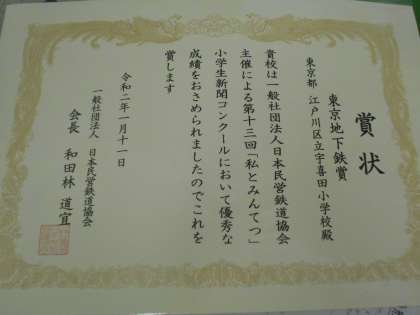 賞状
東京地下鉄賞
東京都 江戸川区立宇喜田小学校殿
貴校は一般社団法人日本民営鉄道協会
主催による第十三回「私とみんてつ」
小学生新聞コンクールにおいて優秀な
成績をおさめられましたのでこれを
賞します
令和二年一月十一日
一般社団法人 日本民営鉄道協会
会長 和田林 道宜